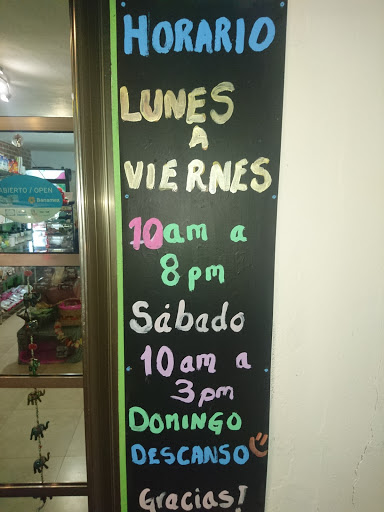 HORARIO
LUNES
A
VIERNES
10am a
8pm
Sábado
10am a
3pm
DOMINGO
DESCANSO
Gracias!
ABIERTO / OPEN
Banamex